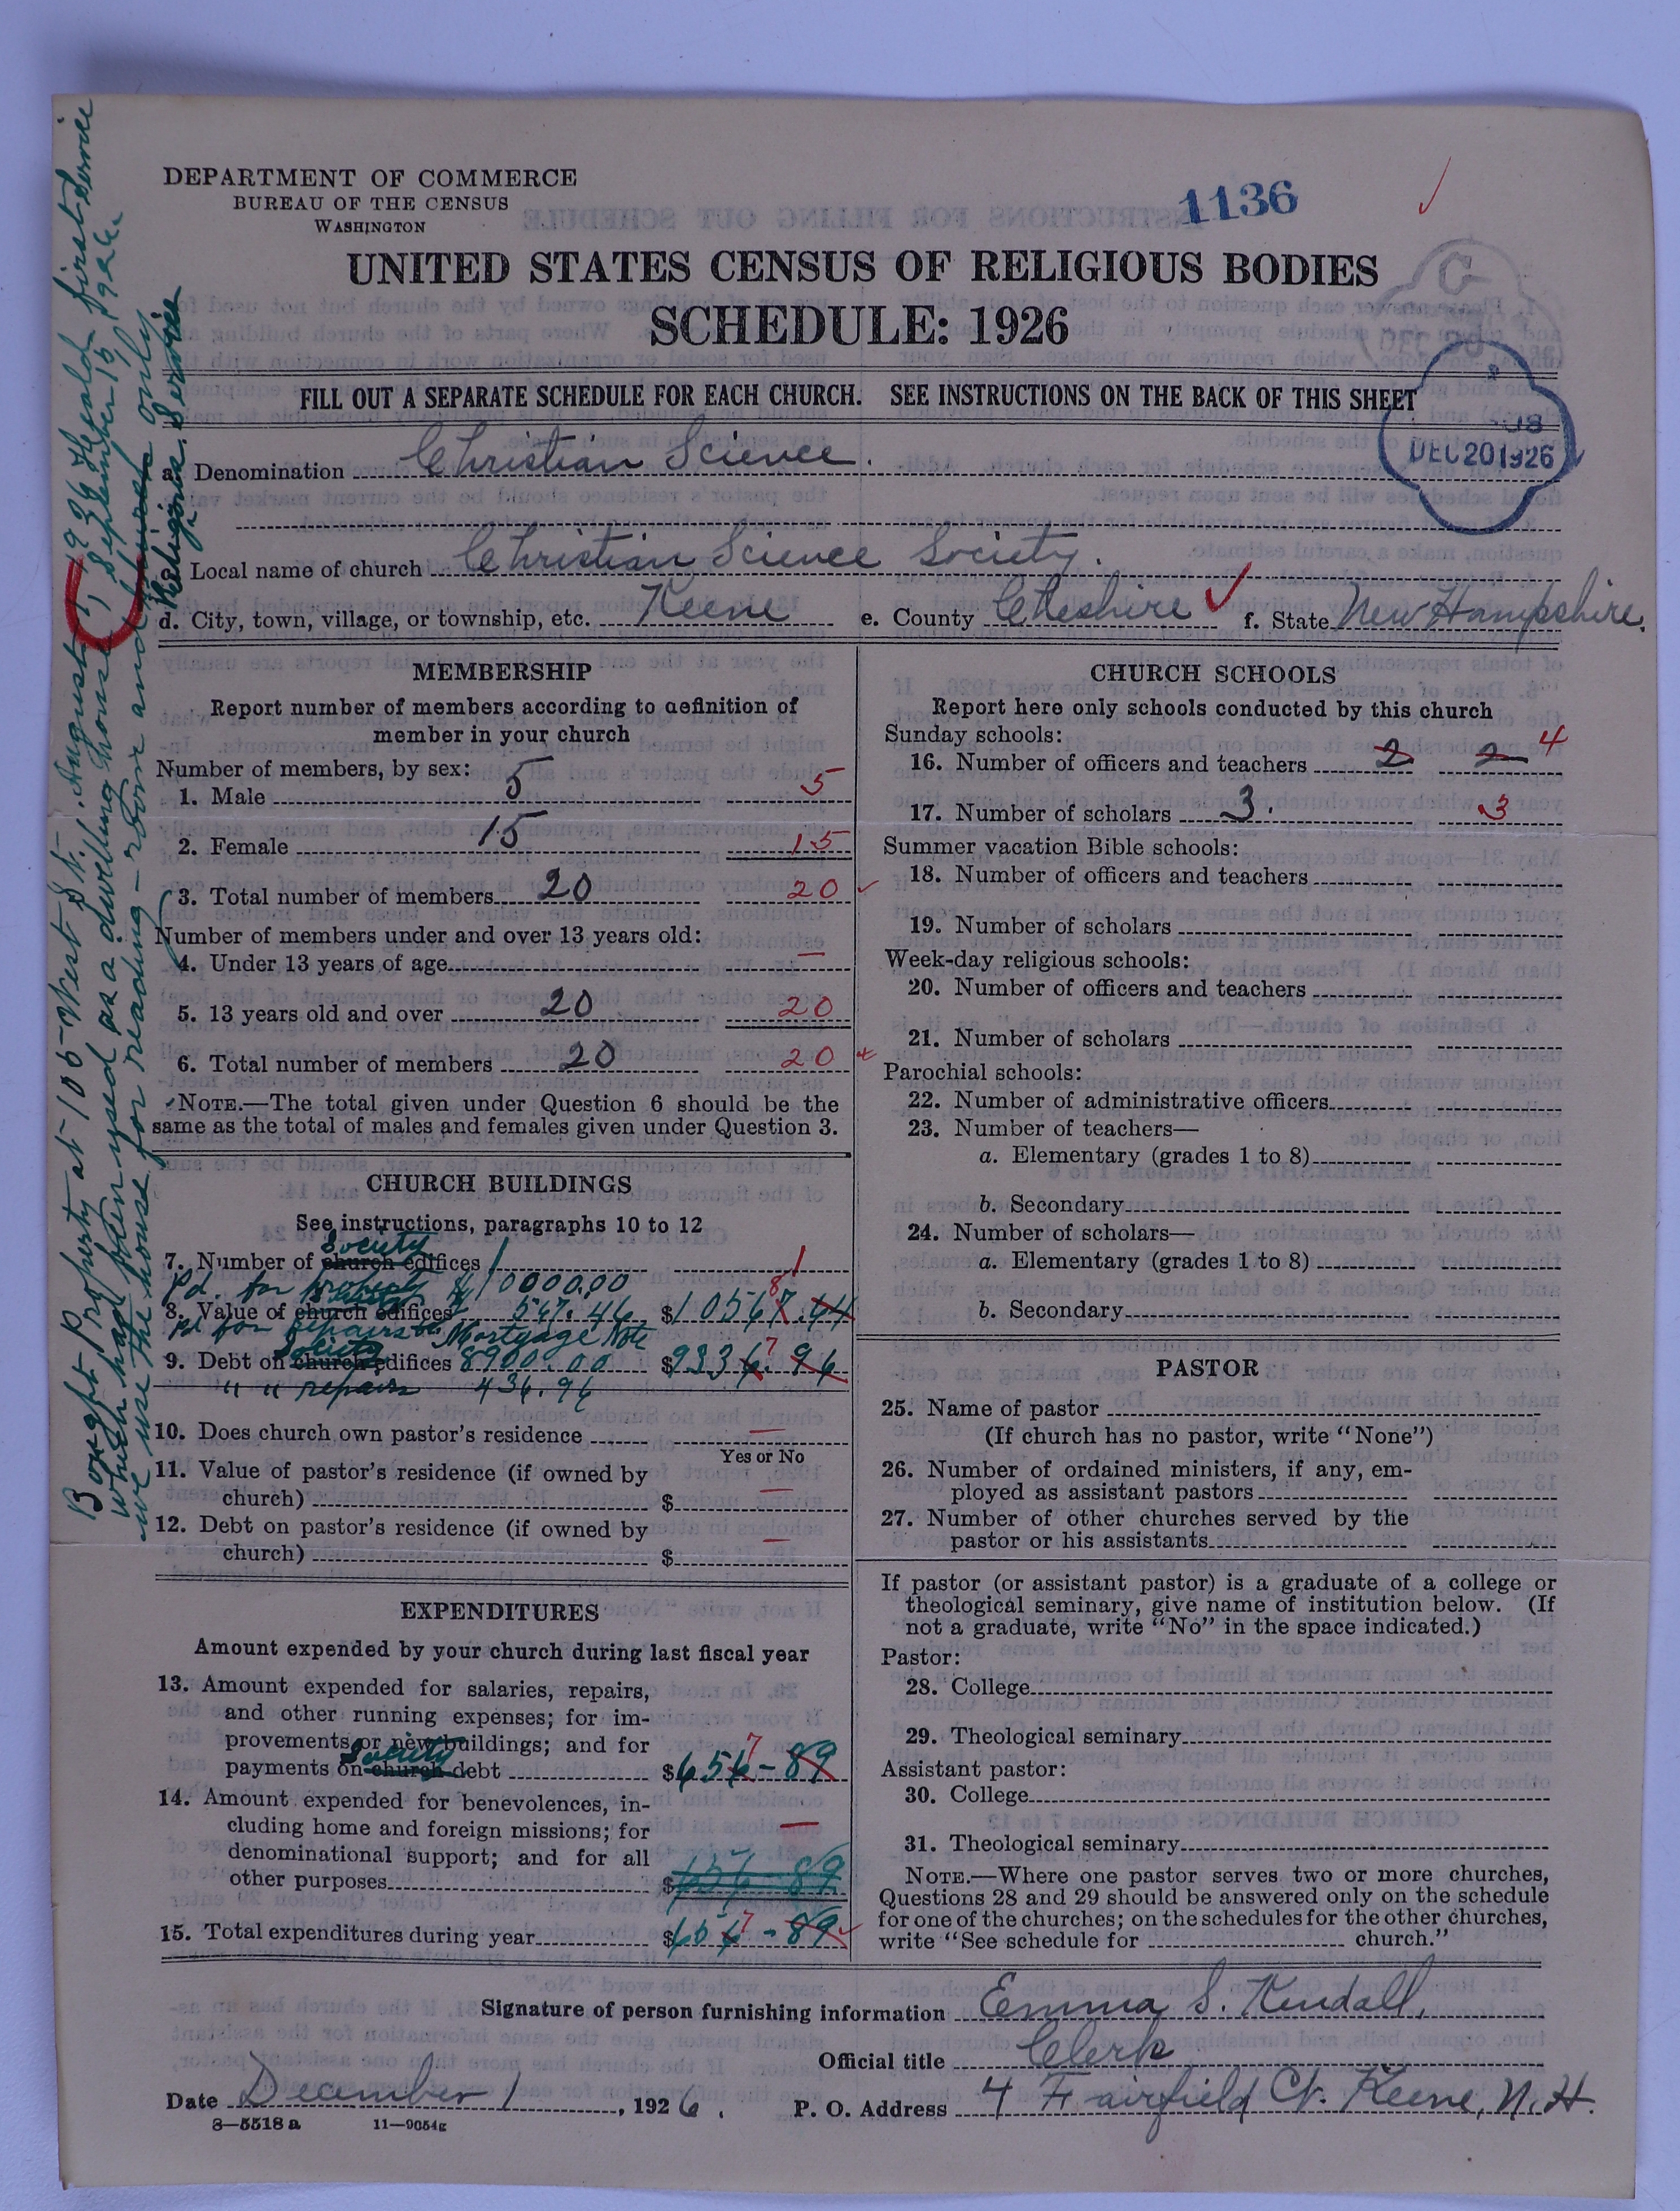 DEPARTMENT OF COMMERCE
BUREAU OF THE CENSUS
WASHINGTON
1136
UNITED STATES CENSUS OF RELIGIOUS BODIES
SCHEDULE: 1926
FILL OUT A SEPARATE SCHEDULE FOR EACH CHURCH. SEE INSTRUCTIONS ON THE BACK OF THIS SHEET
DEC 20 1926
a. Denomination Christian Science.
c. Local name of church Christian Science Society.
d. City, town, village, or township, etc. Keene e. County Cheshire f. State New Hampshire.
Bought Property at 106-West St. August 5, 1926 Heald first service
which had been used as a dwelling house, September 15, 1926.
we use the house for reading-room and church only
Religious Service
MEMBERSHIP
Report number of members according to definition of
member in your church
Number of members, by sex:
1. Male 5 5
2. Female 15 15
3. Total number of members 20 20
Number of members under and over 13 years old:
4. Under 13 years of age —
5. 13 years old and over 20 20
6. Total number of members 20 20
NOTE.—The total given under Question 6 should be the
same as the total of males and females given under Question 3.
CHURCH BUILDINGS
See instructions, paragraphs 10 to 12
Society
7. Number of church edifices 1 1
Pd. for property $10000.00
8. Value of church edifices 567.46 $10567.44 8
Pd for repairs on Mortgage Note
Society
9. Debt on church edifices 8900.00 $9336.96 7
" " repairs 436.96
10. Does church own pastor's residence —
Yes or No
11. Value of pastor's residence (if owned by
church) $ —
12. Debt on pastor's residence (if owned by
church) $ —
EXPENDITURES
Amount expended by your church during last fiscal year
13. Amount expended for salaries, repairs,
and other running expenses; for im-
provements or new buildings; and for
Society
payments on church debt $656-89 7
14. Amount expended for benevolences, in-
cluding home and foreign missions; for
denominational support; and for all
other purposes $656-89 —
15. Total expenditures during year $656-89 7
CHURCH SCHOOLS
Report here only schools conducted by this church
Sunday schools:
16. Number of officers and teachers 2 2 4
17. Number of scholars 3. 3
Summer vacation Bible schools:
18. Number of officers and teachers
19. Number of scholars
Week-day religious schools:
20. Number of officers and teachers
21. Number of scholars
Parochial schools:
22. Number of administrative officers
23. Number of teachers—
a. Elementary (grades 1 to 8)
b. Secondary
24. Number of scholars—
a. Elementary (grades 1 to 8)
b. Secondary
PASTOR
25. Name of pastor
(If church has no pastor, write "None")
26. Number of ordained ministers, if any, em-
ployed as assistant pastors
27. Number of other churches served by the
pastor or his assistants
If pastor (or assistant pastor) is a graduate of a college or
theological seminary, give name of institution below. (If
not a graduate, write "No" in the space indicated.)
Pastor:
28. College
29. Theological seminary
Assistant pastor:
30. College
31. Theological seminary
NOTE.—Where one pastor serves two or more churches,
Questions 28 and 29 should be answered only on the schedule
for one of the churches; on the schedules for the other churches,
write "See schedule for church."
Signature of person furnishing information Emma S. Kendall,
Official title Clerk
Date December 1, 1926. P. O. Address 4 Fairfield Ct. Keene, N.H.
8—5518 a 11—9054g